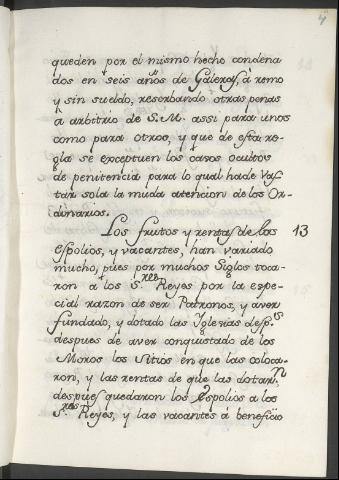 4
queden por el mismo hecho condena
dos en seis años de Galeras, à remo
y sin sueldo, reserbando otras penas
à arbitrio de S. M. assi para unos
como para otros, y que de esta re-
gla se exceptuen los casos ocultos
de penitencia para lo qual hade vas
tar sola la muda atencion de los Or-
dinarios.
Los frutos y rentas de las 13
espolios, y vacantes, han variado
mucho, pues por muchos Siglos toca-
ron a los S.res Reyes por la espe-
cial razon de ser Patronos, y aver
fundado, y dotado las Yglesias desp.s
despues de aver conquistado de los
Moros los Sitios en que las coloca-
ron, y las rentas de que las dotaron
despues quedaron los Espolios a los
S.res Reyes, y las vacantes á beneficio